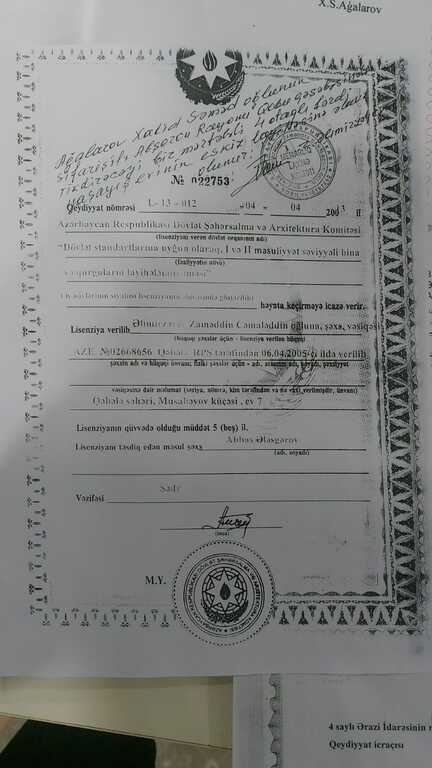 X.S.Ağalarov
Ağalarov Xalid Səməd oğlunun
sifarişilə Abşeron Rayonu
tikdirəcəyi bir mərtəbəli otaqlı fərdi
yaşayış evinin eskiz layihəsinə
olunur.
№ 022753
Qeydiyyat nömrəsi L-13-012 -04- 04 2003 il
Azərbaycan Respublikası Dövlət Şəhərsalma və Arxitektura Komitəsi
(lisenziyanı verən dövlət orqanının adı)
"Dövlət standartlarına uyğun olaraq, I və II məsuliyyət səviyyəli bina
(fəaliyyətin növü)
və qurğuların layihələndirilməsi"
həyata keçirməyə icazə verir.
Lisenziya verilib Zainəddin Camaləddin oğluna, şəxs. vəsiqəsi
(hüquqi şəxslər üçün - lisenziya verilən hüquqi
AZE №02668656 Qəbələ RPŞ tərəfindən 06.04.2005-ci ildə verilib
şəxsin adı və hüquqi ünvanı; fiziki şəxslər üçün - adı, atasının adı, soyadı, şəxsiyyət
vəsiqəsinə dair məlumat (seriya, nömrə, kim tərəfindən və nə vaxt verilmişdir, ünvanı)
Qəbələ şəhəri, Musabəyov küçəsi, ev 7
Lisenziyanın qüvvədə olduğu müddət 5 (beş) il.
Lisenziyanı təsdiq edən məsul şəxs Abbas Ələsgərov
(adı, soyadı)
Vəzifəsi Sədr
(imza)
M.Y.
4 saylı Ərazi İdarəsinin
Qeydiyyat icraçısı